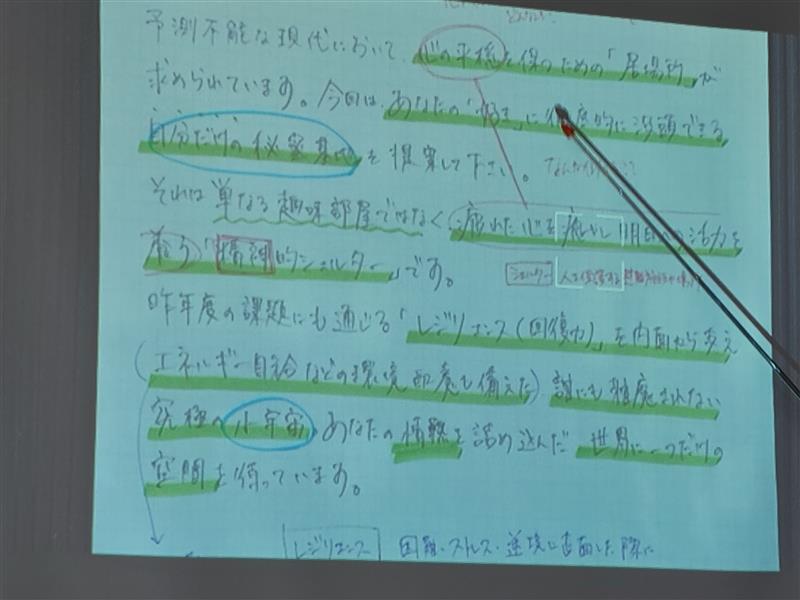 予測不能な現代において、心の平穏を保つための「居場所」が
求められています。今回は、あなたの「好き」に徹底的に没頭できる
自分だけの秘密基地を提案して下さい。
それは単なる趣味部屋ではなく、疲れた心を癒やし、明日への活力を
養う「精神的シェルター」です。
シェルター 人を保護する
昨年度の課題にも通じる「レジリエンス(回復力)」を内面から支え
(エネルギー自給などの環境配慮も備えた)誰にも邪魔されない
究極の小宇宙。あなたの情熱を詰め込んだ世界に一つだけの
空間を待っています。
レジリエンス 困難・ストレス・逆境に直面した際に